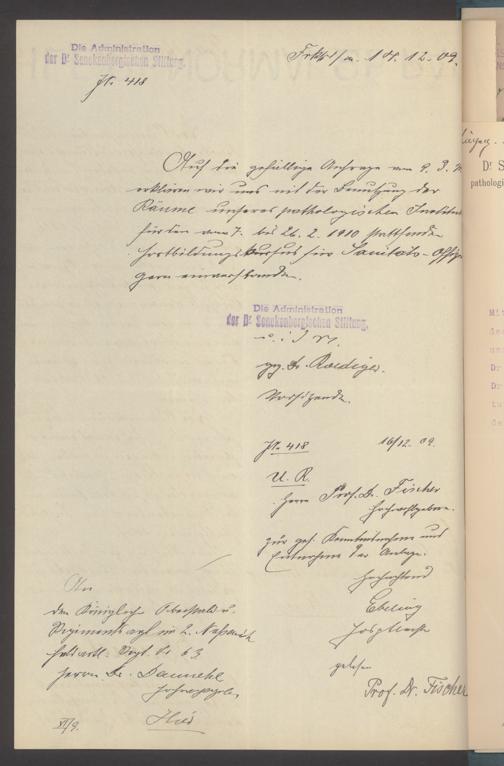 Die Administration
der Dr Senckenbergischen Stiftung.
Frkft a/m. 12. 09.
J№ 418
Auf die gefällige Anfrage vom 9. d. M.
erklären wir uns mit der Benutzung der
Räume unseres pathologischen Instituts
für den vom 7. bis 26. 2. 1910 stattfindenden
Fortbildungskursus für Sanitäts-Offiz
gern einverstanden.
Die Administration
der Dr Senckenbergischen Stiftung.
gez. Dr. Roediger.
Vorsitzender.
J№ 418 16/12. 09.
U. R.
Herrn Prof. Dr. Fischer
Hochwohlgeboren.
zur gef. Kenntnisnahme und
Entnahme der Anlage.
Hochachtend
Ebeling
gelesen
Prof. Dr. Fischer
An
den Königlich Oberstabs- u.
Regimentsarzt im 2. Nassauisch
Feldartl. Regt. No 63
Herrn Dr.
Hier
Dr S
pathologi
Mit
Dr
Dr